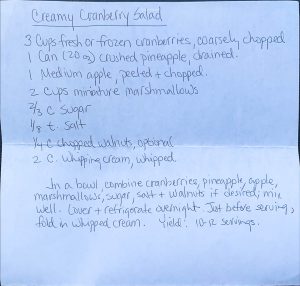 Creamy Cranberry Salad
3 Cups fresh or frozen cranberries, coarsely chopped
1 Can (20 oz) crushed pineapple, drained.
1 Medium apple, peeled + chopped.
2 Cups miniature marshmallows
2/3 C Sugar
1/8 t. salt
1/4 C chopped walnuts, optional
2 C. Whipping cream, whipped.
In a bowl, combine cranberries, pineapple, apple,
marshmallows, sugar, salt + walnuts if desired; mix
well. Cover + refrigerate overnight. Just before serving,
fold in whipped cream. Yield: 10-12 servings.